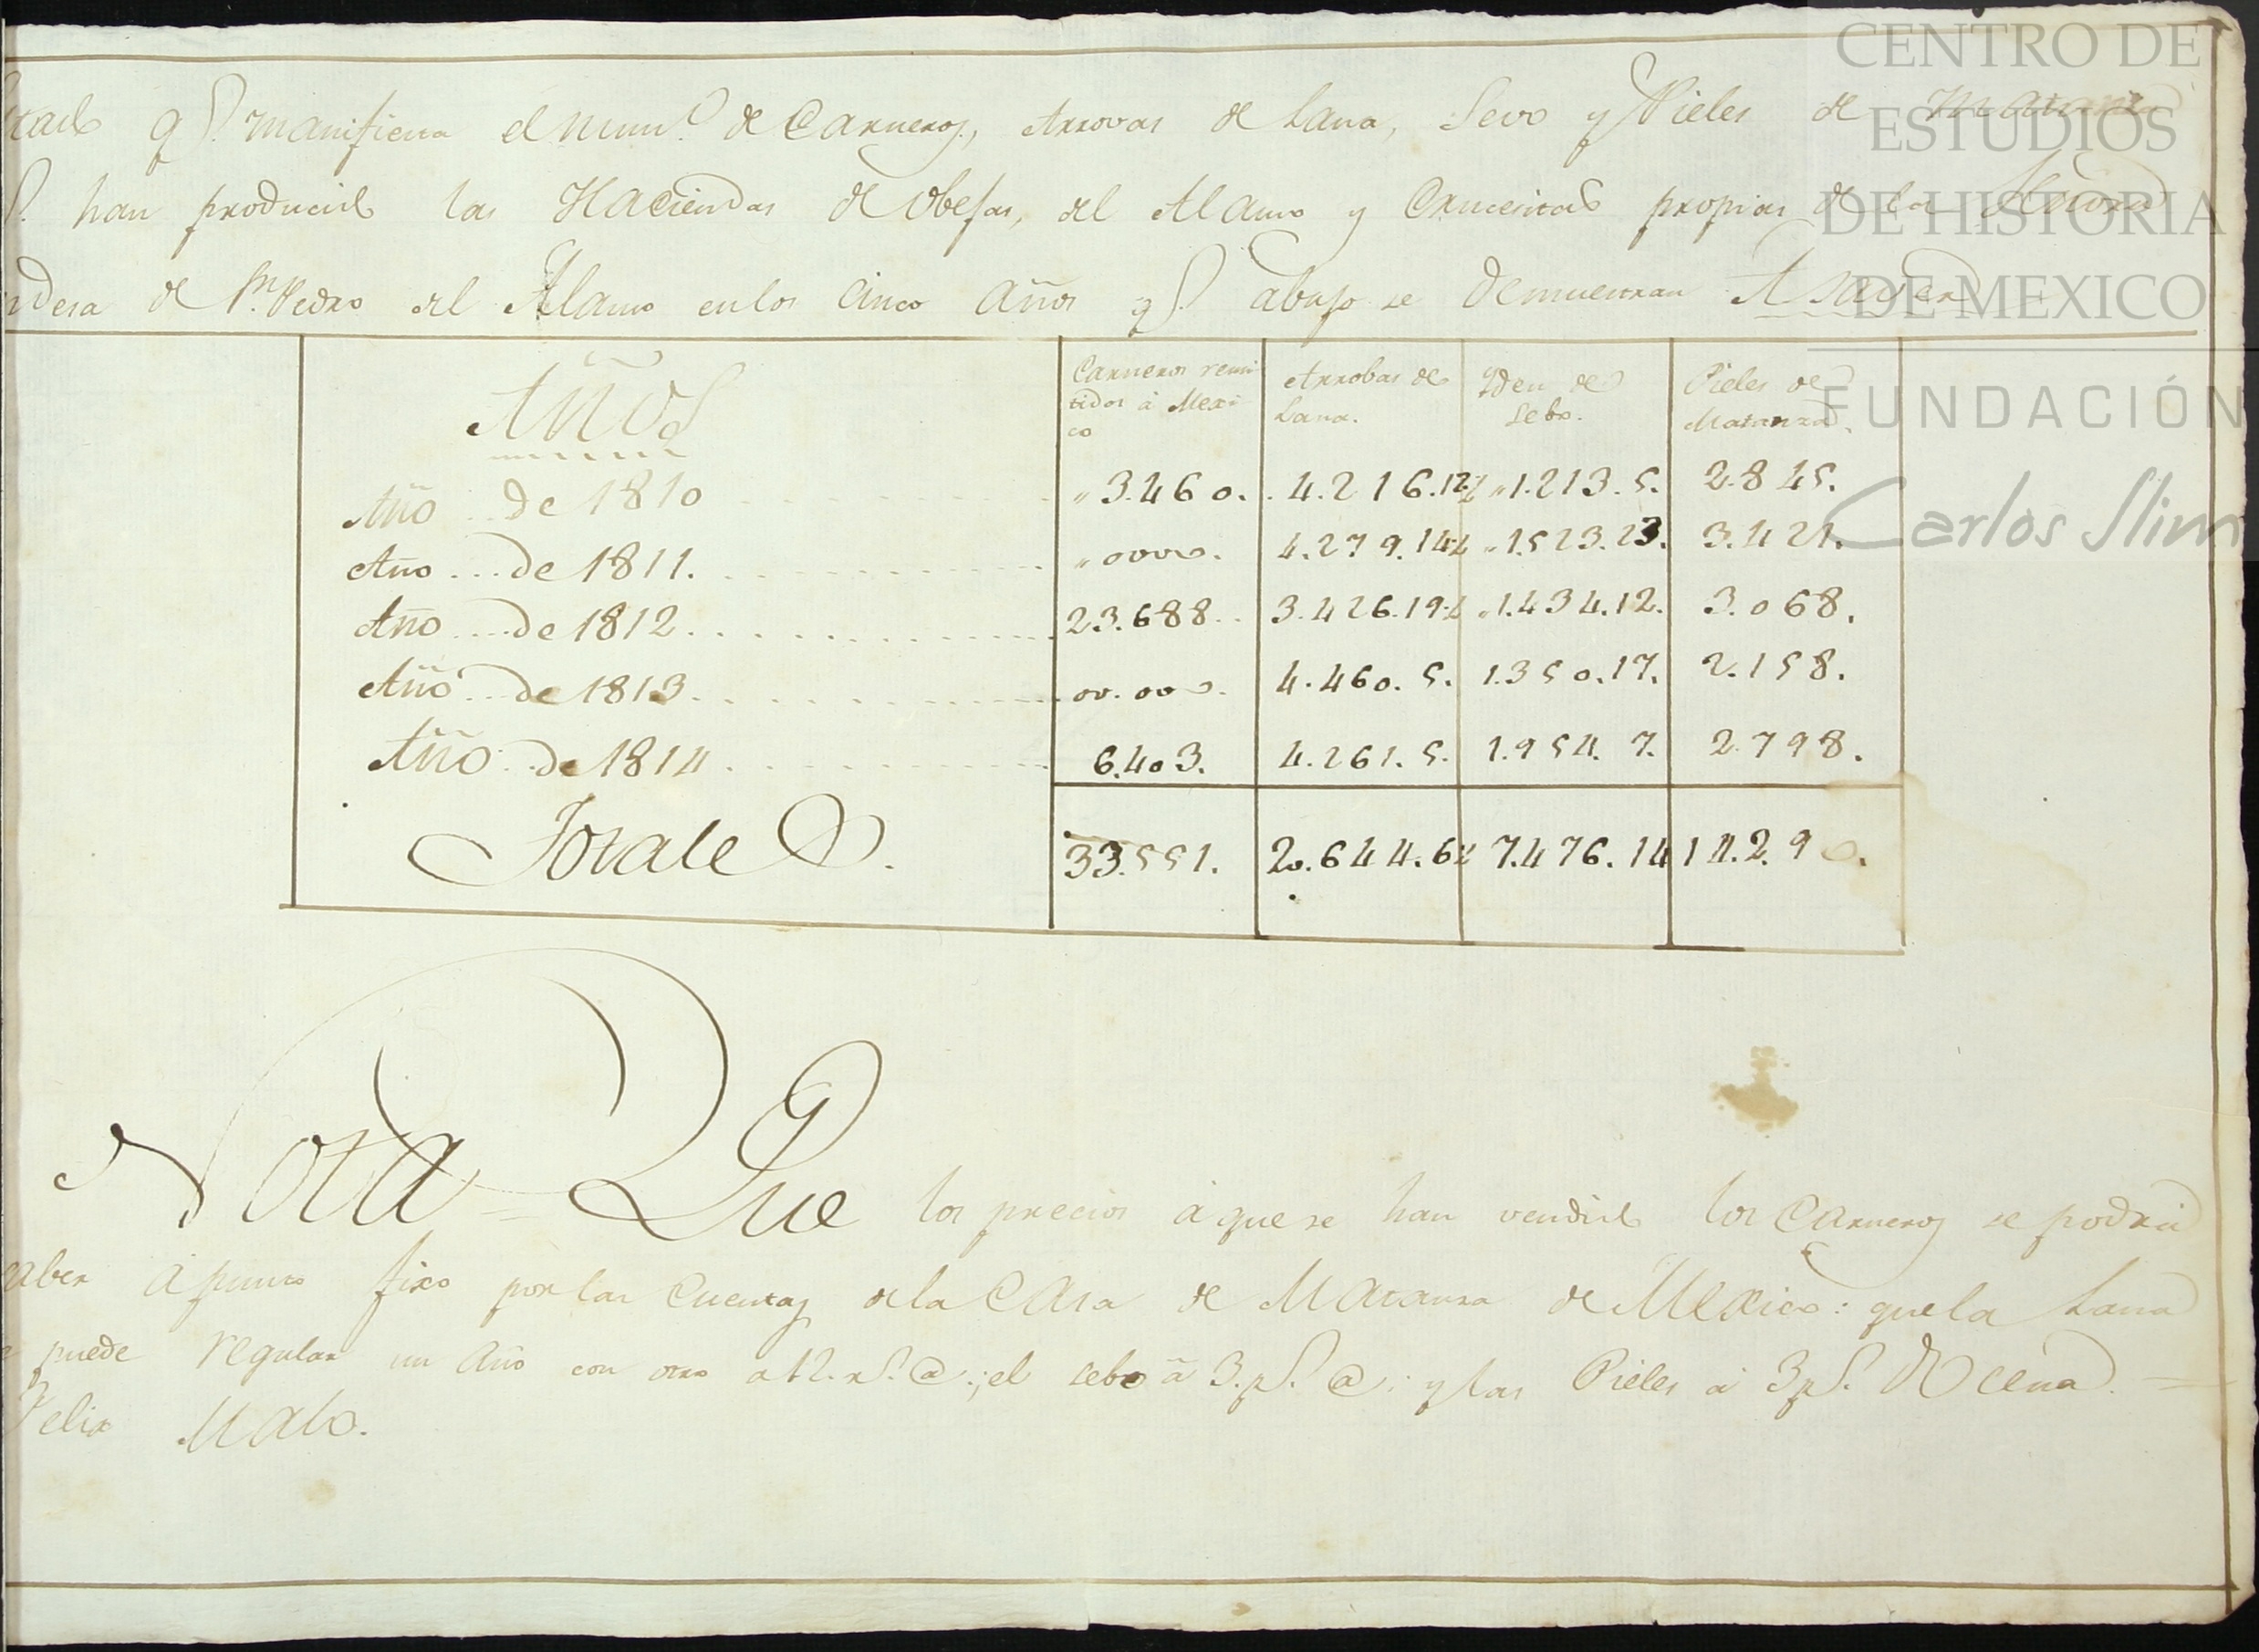 CENTRO DE
ESTUDIOS
DE HISTORIA
DE MEXICO
FUNDACIÓN
Carlos Slim
tado qe. manifiesta el num.o de Carneros, Arrovas de Lana, Sevo y Pieles de Matanza
qe. han producido las Haciendas de Obejas, del Alamo y Crucesitas propias de la Señora
ndesa de Sn. Pedro del Alamo en los cinco años qe. abajo se demuestran A saver
AÑOS
Carneros remi
tidos á Mexi
co
Arrobas de
Lana.
Yden de
Sebo.
Pieles de
Matanza.
Año de 1810 " 3.460. 4.216.12½ " 1.213.5. 2.845.
Año de 1811. " 0000. 4.279.14½ " 1.523.23. 3.421.
Año de 1812. 23.688. 3.426.19½ " 1.434.12. 3.068.
Año de 1813. 00.000. 4.460.5. 1.350.17. 2.158.
Año de 1814. 6.403. 4.261.5. 1.954.7. 2.798.
Totales. 33.551. 20.644.6½ 7.476.14 14.290.
Nota = Que los precios á que se han vendido los Carneros se podrá
saber á punto fixo por las Cuentas de la Casa de Matanza de Mexico: que la Lana
se puede regular un año con otro a 12. rs. @.; el sebo á 3. ps. @. y las Pieles á 3 ps. Docena. =
Felix Malo.